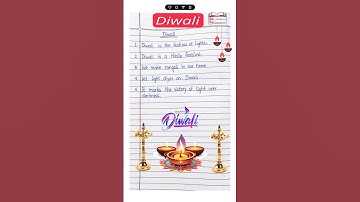 Diwali
Diwali
1. Diwali is the festival of lights.
2. Diwali is a Hindu festival.
3. We make rangoli in our home.
4. We light diyas on Diwali.
5. It marks the victory of light over
darkness.
Diwali